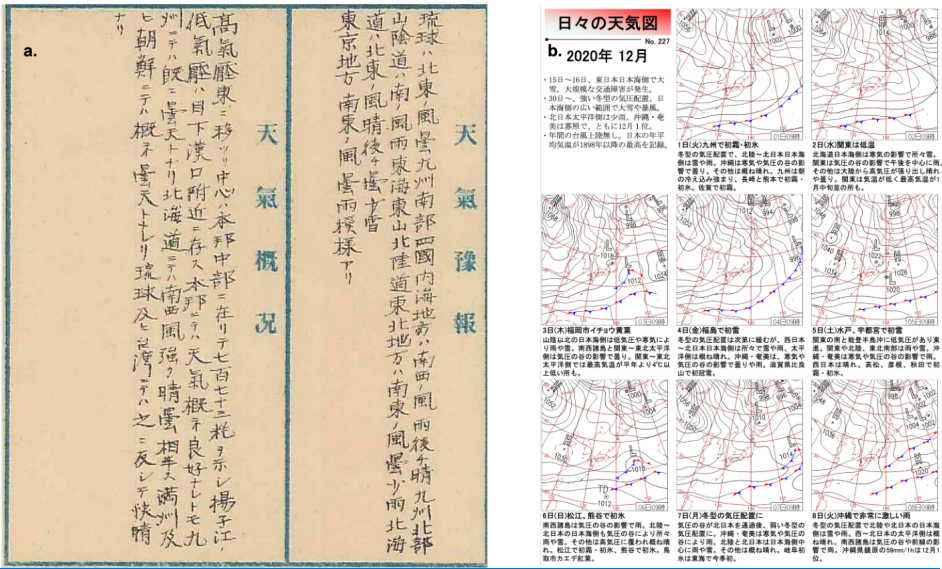 a.
天氣豫報
琉球ハ北東ノ風曇九州南部四國内海地方ハ南西ノ風雨後チ晴九州北部
山陰道ハ南ノ風雨東海東山北陸道東北地方ハ南東ノ風曇少雨北海
道ハ北東ノ風晴後チ曇少雪
東京地方 南東ノ風 曇雨模様アリ
天氣概况
高氣壓東ニ移ツリ中心ハ本邦中部ニ在リテ七百七十三粍ヲ示シ揚子江
低氣壓ハ目下漢口附近ニ存ス本邦ニテハ天氣概ネ良好ナレトモ九
州ニテハ既ニ曇天トナリ北海道ニテハ南西風強ク晴曇相半ス満州及
ヒ朝鮮ニテハ概ネ曇天トナレリ琉球及ヒ台湾ニテハ之ニ反シテ快晴
ナリ
日々の天気図
No. 227
b. 2020年 12月
・15日～16日、東日本日本海側で大
雪。大規模な交通障害が発生。
・30日～、強い冬型の気圧配置、日
本海側の広い範囲で大雪や暴風。
・北日本太平洋側は少雨、沖縄・奄
美は寡照で、ともに12月１位。
・年間の台風上陸無し。日本の年平
均気温が1898年以降の最高を記録。
01日09時
1日(火)九州で初霜・初氷
冬型の気圧配置で、北陸～北日本日本海
側は雪や雨。沖縄は寒気や気圧の谷の影
響で曇り。その他は概ね晴れ。九州は朝
の冷え込み強まり、長崎と熊本で初霜・
初氷。佐賀で初霜。
02日09時
2日(水)関東は低温
北海道日本海側は寒気の影響で所々雪。
関東は気圧の谷の影響で午後を中心に雨。
その他は大陸から高気圧が張り出し晴れ
や曇り。関東は気温が低く最高気温が1
月中旬並の所も。
03日09時
3日(木)福岡市イチョウ黄葉
山陰以北の日本海側は低気圧や寒気によ
り雨や雪。南西諸島と関東～東北太平洋
側は気圧の谷の影響で曇り。関東～東北
太平洋側では最高気温が平年より4℃以
上低い所も。
04日09時
4日(金)福島で初雪
冬型の気圧配置は次第に緩むが、西日本
～北日本日本海側は所々で雪や雨、太平
洋側は概ね晴れ。沖縄・奄美は、寒気や
気圧の谷の影響で曇りや雨。滋賀県比良
山で初冠雪。
05日09時
5日(土)水戸、宇都宮で初雪
関東の南と紀伊半島沖に低気圧があり東
進。関東や北陸、東北南部は雨や雪。沖
縄・奄美は寒気や気圧の谷の影響で雨。
西日本は晴れ。高松、彦根、秋田で初
霜・初氷。
06日09時
6日(日)松江、熊谷で初氷
南西諸島は気圧の谷の影響で雨。北陸～
北日本の日本海側も気圧の谷により所々
雨や雪。その他は高気圧に覆われ概ね晴
れ。松江で初霜・初氷、熊谷で初氷。鳥
取市カエデ紅葉。
07日09時
7日(月)冬型の気圧配置に
気圧の谷が北日本を通過後、弱い冬型の
気圧配置に。沖縄・奄美は寒気や気圧の
谷により雨。北陸と北日本は日本海側中
心に雨や雪。その他は概ね晴れ。岐阜初
氷は東海で今季初。
08日09時
8日(火)沖縄で非常に激しい雨
冬型の気圧配置で北陸や北日本の日本海
側は雪や雨。西～北日本の太平洋側は概
ね晴れ。南西諸島は気圧の谷や前線の影
響で雨。沖縄県鏡原の59mm/1hは12月1
位。